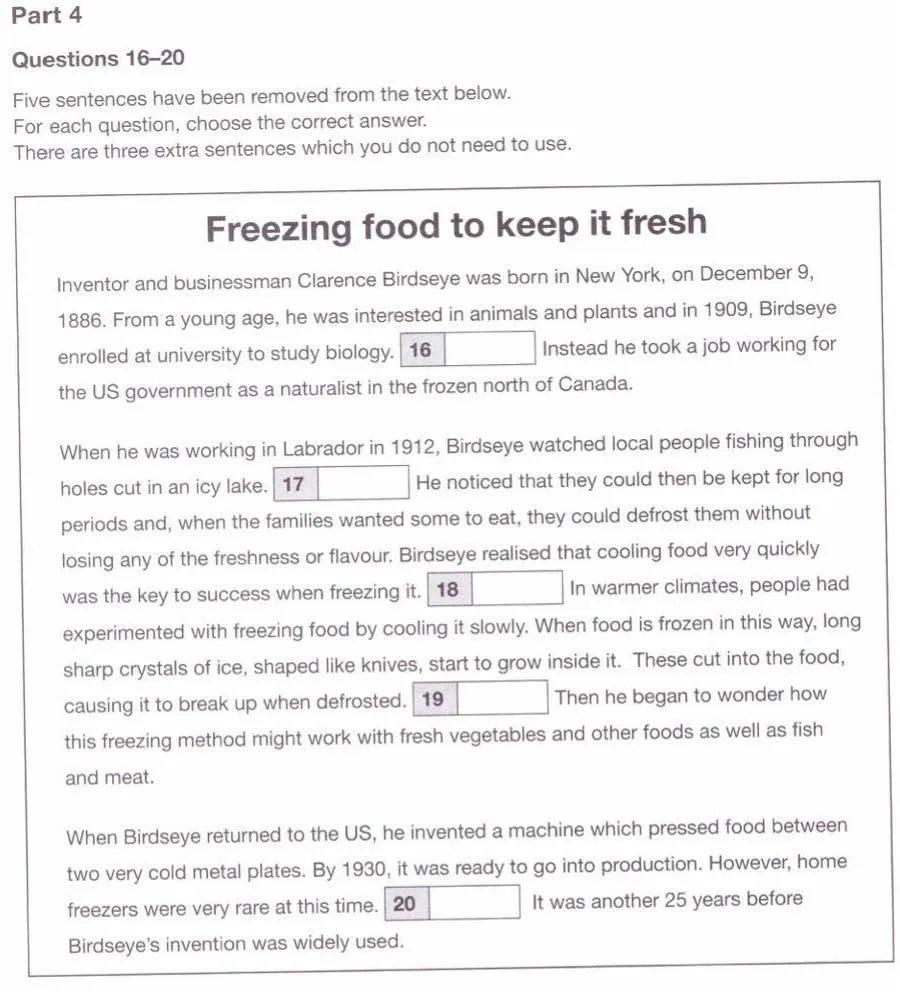 Part 4
Questions 16–20
Five sentences have been removed from the text below.
For each question, choose the correct answer.
There are three extra sentences which you do not need to use.
Freezing food to keep it fresh
Inventor and businessman Clarence Birdseye was born in New York, on December 9,
1886. From a young age, he was interested in animals and plants and in 1909, Birdseye
enrolled at university to study biology. 16 Instead he took a job working for
the US government as a naturalist in the frozen north of Canada.
When he was working in Labrador in 1912, Birdseye watched local people fishing through
holes cut in an icy lake. 17 He noticed that they could then be kept for long
periods and, when the families wanted some to eat, they could defrost them without
losing any of the freshness or flavour. Birdseye realised that cooling food very quickly
was the key to success when freezing it. 18 In warmer climates, people had
experimented with freezing food by cooling it slowly. When food is frozen in this way, long
sharp crystals of ice, shaped like knives, start to grow inside it. These cut into the food,
causing it to break up when defrosted. 19 Then he began to wonder how
this freezing method might work with fresh vegetables and other foods as well as fish
and meat.
When Birdseye returned to the US, he invented a machine which pressed food between
two very cold metal plates. By 1930, it was ready to go into production. However, home
freezers were very rare at this time. 20 It was another 25 years before
Birdseye's invention was widely used.